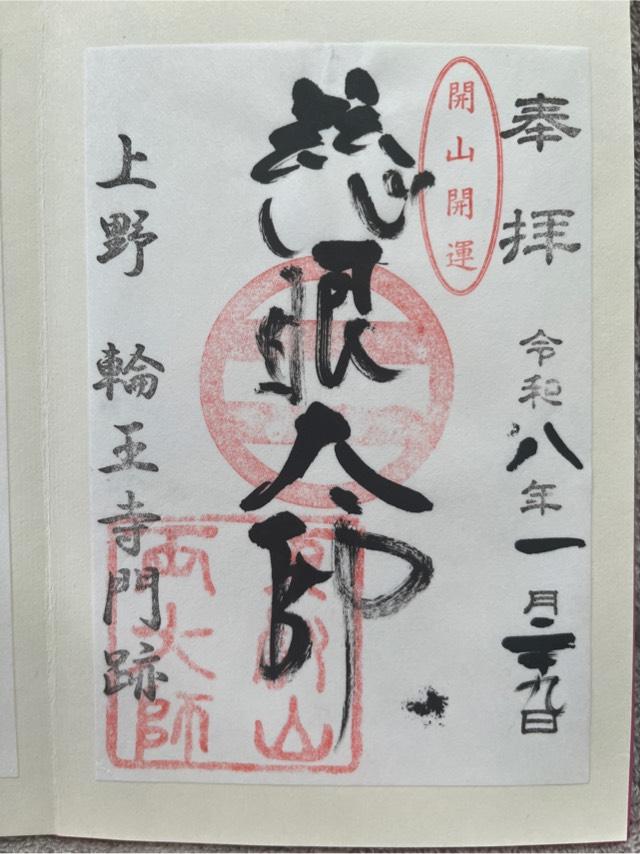 奉拝
令和八年一月二十九日
開山開運
慈眼大師
東叡山
両大師
上野 輪王寺門跡